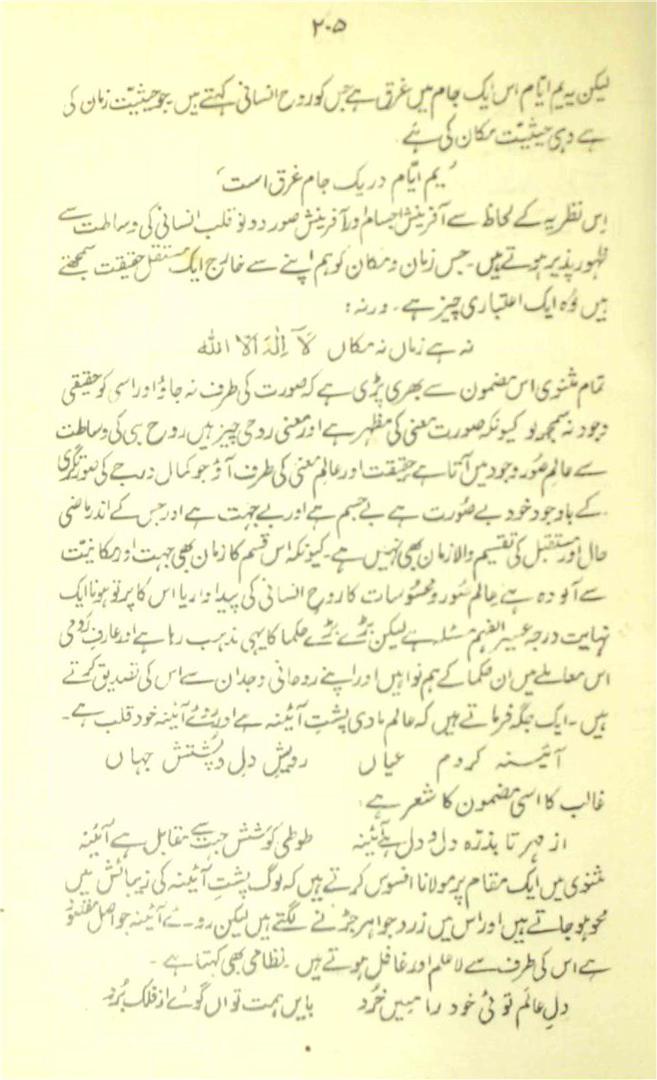 ۲۰۵
لیکن یہ یم ایّام اس ایک جام میں غرق ہے جس کو روح انسانی کہتے ہیں جو حیثیّت زمان کی
ہے وہی حیثیّت مکان کی ہے
’یم ایّام در یک جام غرق است‘
اِس نظریہ کے لحاظ سے آفرینش اجسام اور آفرینش صور دونو قلب انسانی کی وساطت سے
ظہور پذیر ہوتے ہیں۔ جس زمان و مکان کو ہم اپنے سے خارج ایک مستقل حقیقت سمجھتے
ہیں وُہ ایک اعتباری چیز ہے۔ ورنہ:
نہ ہے زماں نہ مکاں لَآ اِلٰہَ اِلّا اللہ
تمام مثنوی اس مضمون سے بھری پڑی ہے کہ صورت کی طرف نہ جاؤ اور اسی کو حقیقی
وجود نہ سمجھ لو کیونکہ صورت معنی کی مظہر ہے اور معنی روحی چیز ہیں روح ہی کی وساطت
سے عالمِ صُور وجود میں آتا ہے حقیقت اور عالم معنی کی طرف آؤ جو کمال درجے کی صورتگری
کے باوجود خود بے صُورت ہے بے جسم ہے اور بے جہت ہے اور جس کے اندر ماضی
حال اور مستقبل کی تقسیم والا زمان بھی نہیں ہے۔ کیونکہ اس قسم کا زمان بھی جہت اور مکانیّت
سے آلودہ ہے عالمِ صُور و محسُوسات کا روحِ انسانی کی پیداوار یا اس کا پرتو ہونا ایک
نہایت درجہ عسیر الفہم مسئلہ ہے لیکن بڑے بڑے حکما کا یہی مذہب رہا ہے اور عارفِ رُومی
اس معاملے میں ان حکما کے ہم نوا ہیں اور اپنے روحانی وجدان سے اس کی تصدیق کرتے
ہیں۔ ایک جگہ فرماتے ہیں کہ عالم مادی پشتِ آئینہ ہے اور رُوئے آئینہ خود قلب ہے۔
آئینہ کردم عیاں رویش دل و پشتش جہاں
غالب کا اسی مضمون کا شعر ہے:
از مہر تا بذرّہ دل و دل ہے آئینہ طوطی کو شش جہت سے مقابل ہے آئینہ
مثنوی میں ایک مقام پر مولانا افسوس کرتے ہیں کہ لوگ پشتِ آئینہ کی زیبائش میں
محو ہو جاتے ہیں اور اس میں زر و جواہر جڑنے لگتے ہیں لیکن روئے آئینہ جو اصل مقصُود
ہے اس کی طرف سے لا علم اور غافل ہوتے ہیں۔ نظامی بھی کہتا ہے۔
دلِ عالم توئی خود را مبیں خُرد بایں ہمت تواں گوئے از فلک بُرد